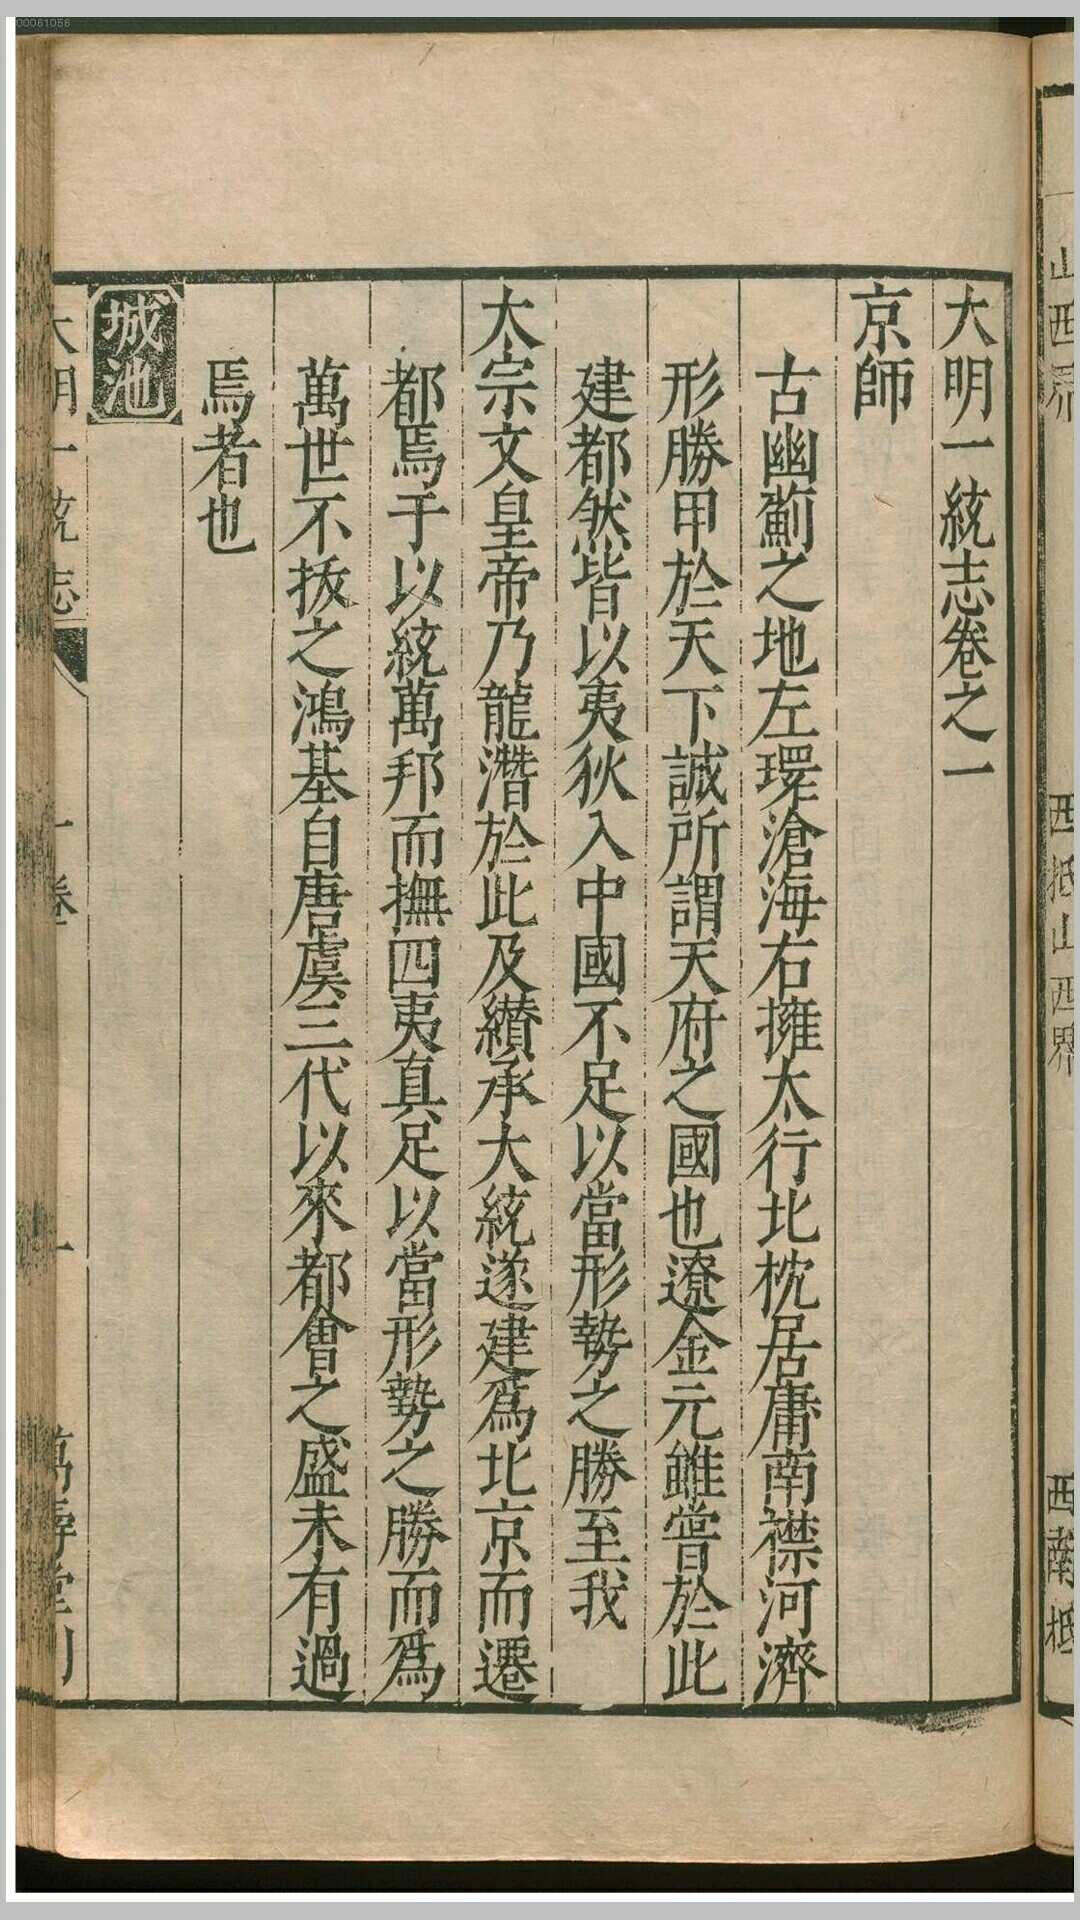 大明一統志卷之一
京師
古幽薊之地左環滄海右擁太行北枕居庸南襟河濟
形勝甲於天下誠所謂天府之國也遼金元雖嘗於此
建都然皆以夷狄入中國不足以當形勢之勝至我
太宗文皇帝乃龍潛於此及纘承大統遂建爲北京而遷
都焉于以統萬邦而撫四夷真足以當形勢之勝而爲
萬世不拔之鴻基自唐虞三代以來都會之盛未有過
焉者也
城池
大明一統志 一卷 一 萬壽堂刊
西抵山西界
西南抵
00061056